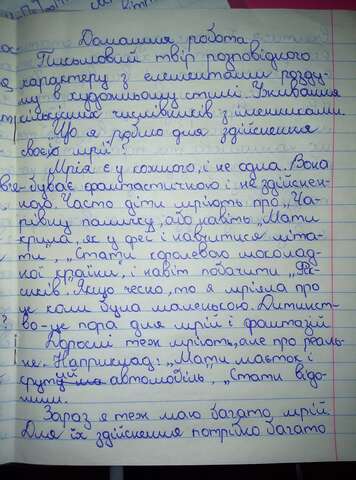 Домашня робота
Письмовий твір розповідного
характеру з елементами розду-
му в художньому стилі. Уживання
кількісних числівників з іменниками.
Що я роблю для здійснення
своєї мрії?
Мрія є у кожного, і не одна. Вона
буває фантастичною і не здійснен-
ною. Часто діти мріють про „Ча-
рівну паличку, або навіть „Мати
крила, як у феї і навчитися літа-
ти, „Стати королевою шоколад-
ної країни", і навіт побачити
Якщо чесно, то я мріяла про
це коли була маленькою. Дитинст-
во-це пора для мрій і фантазій
Дорослі теж мріють, але про реаль-
не. Наприклад: „Мати маєток і
крутий автомобіль", „Стати відо-
мим.
Зараз я теж маю багато мрій.
Для їх здійснення потрібно багато